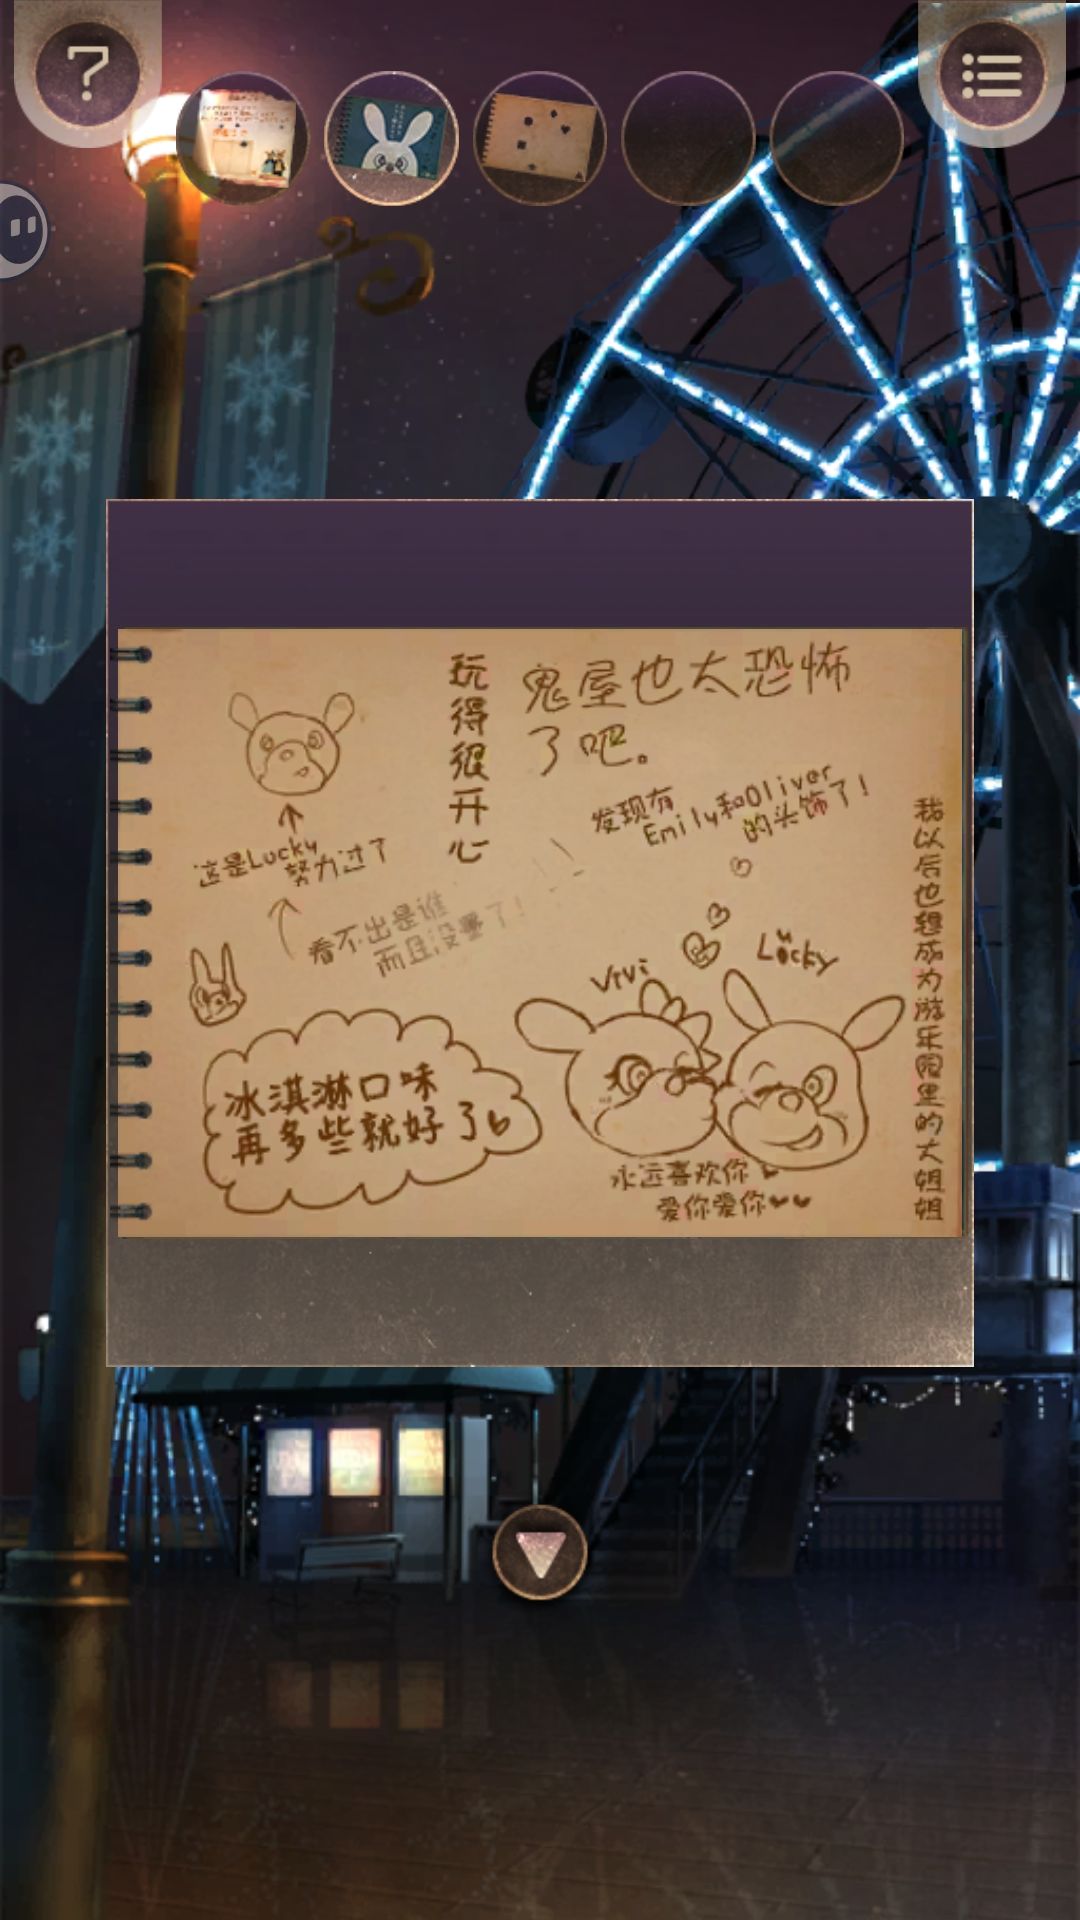 玩得很开心
鬼屋也太恐怖
了吧。
发现有
Emily和Oliver
的头饰了！
这是Lucky
努力过了
看不出是谁
而且没画了！
Vivi
Lucky
冰淇淋口味
再多些就好了
永远喜欢你
爱你爱你
我以后也想成为游乐园里的大姐姐